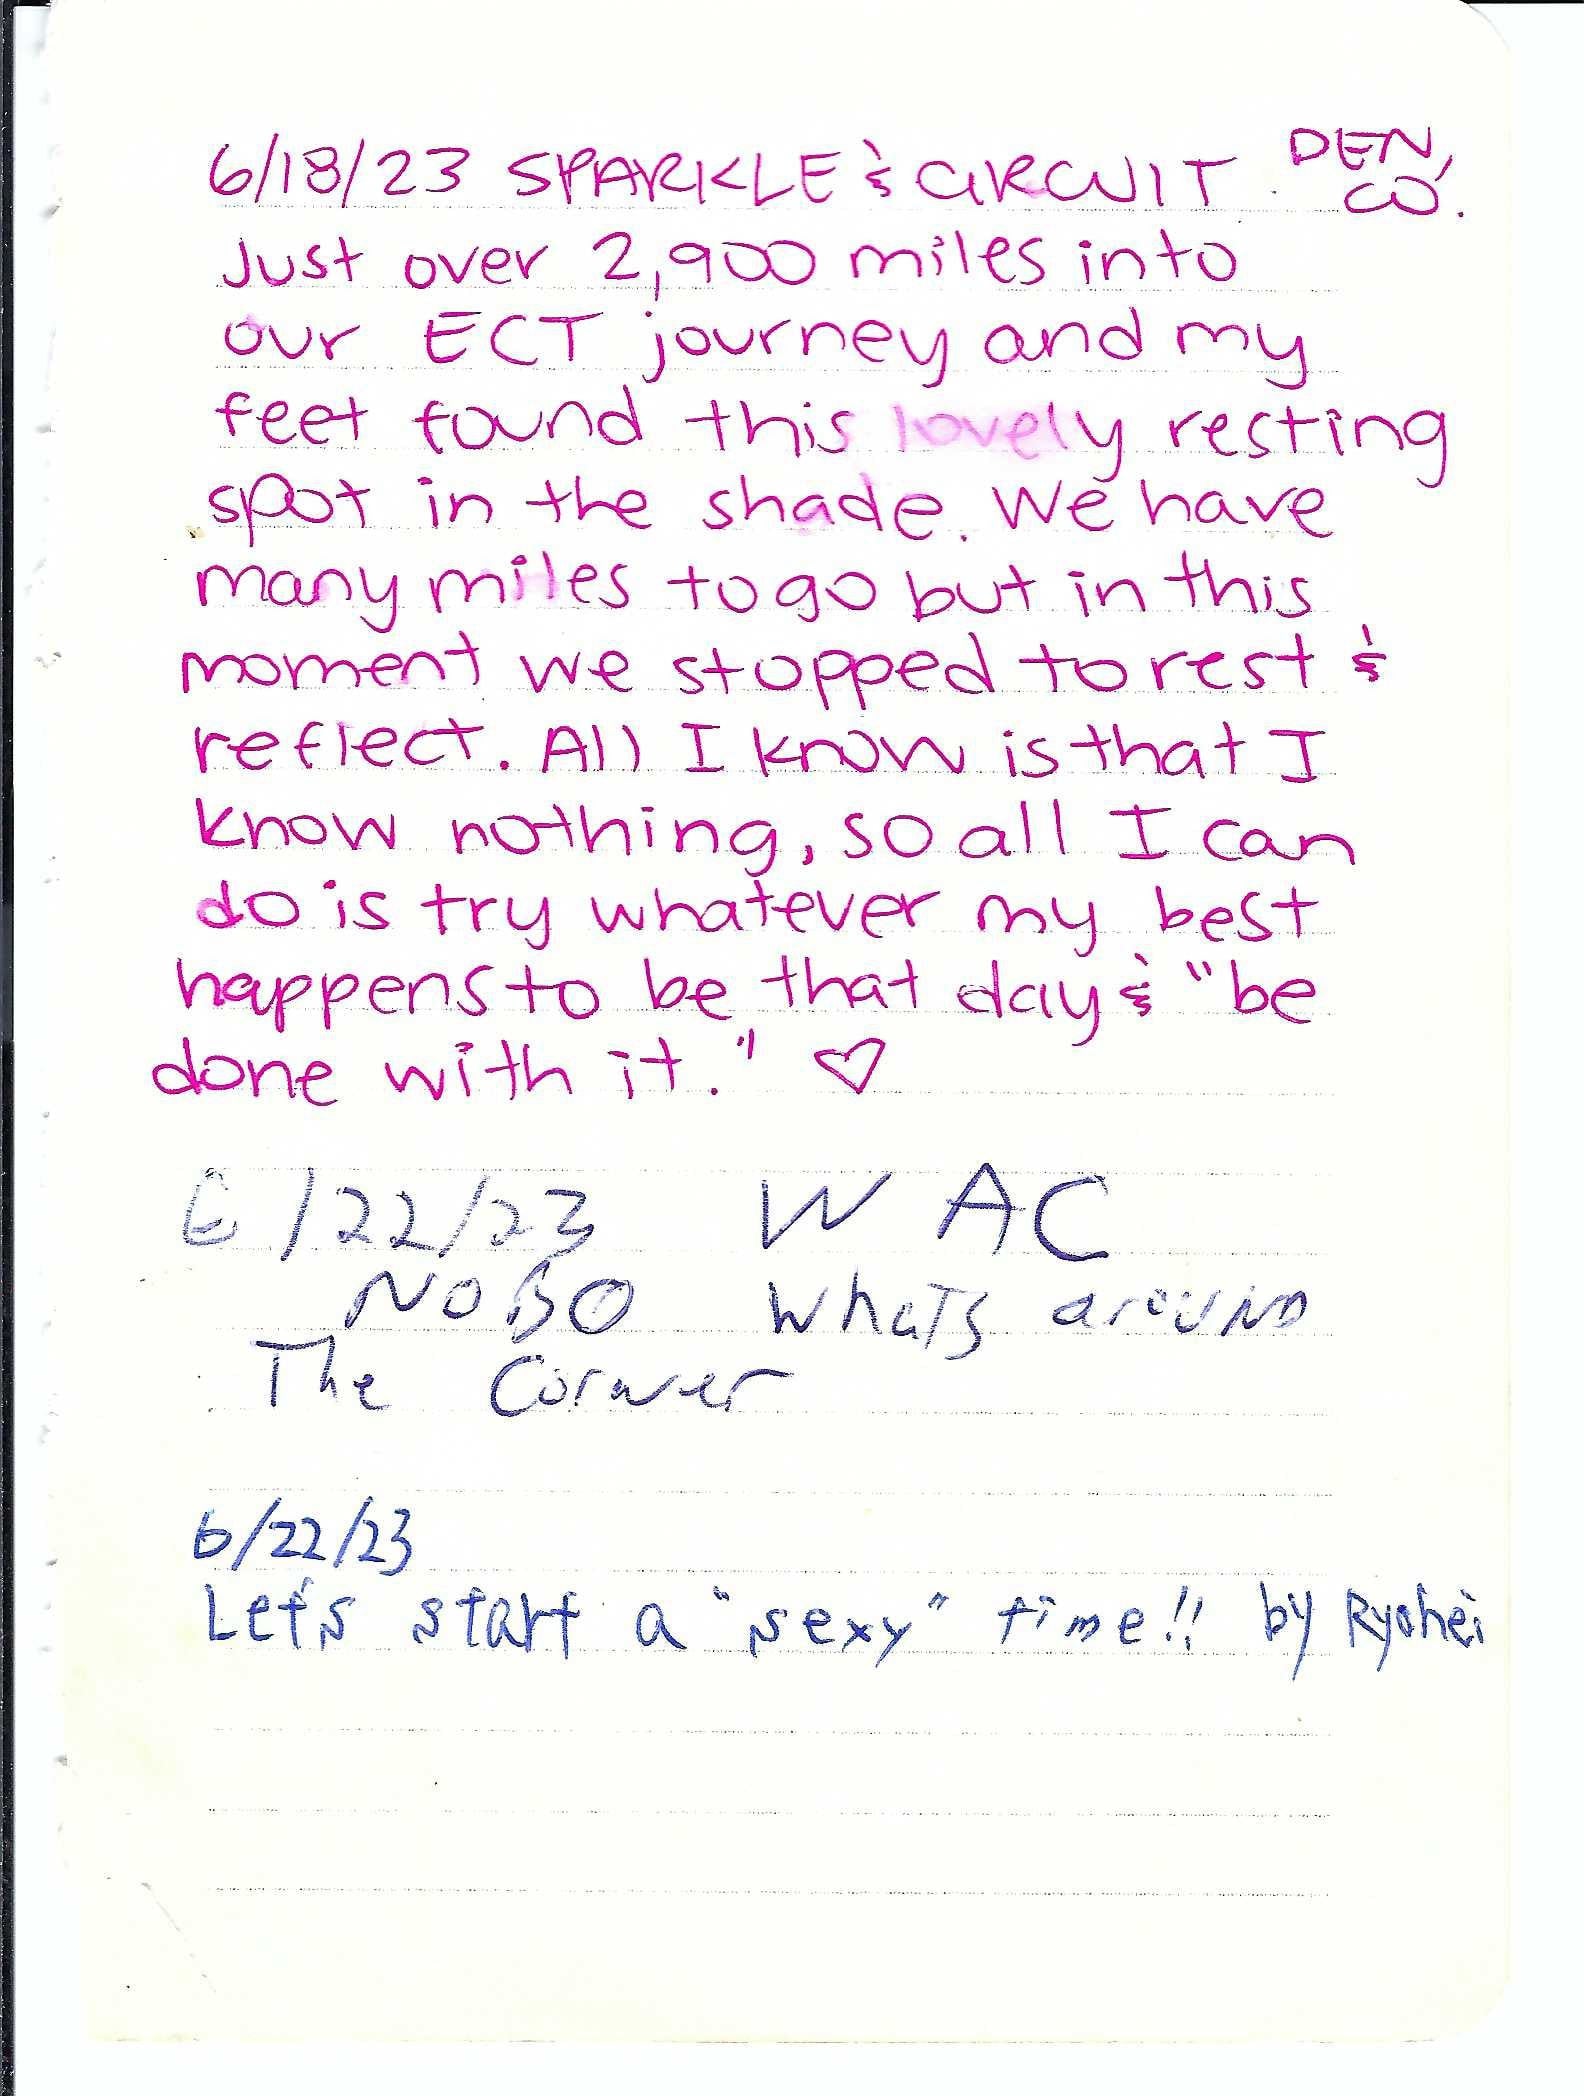 6/18/23 SPARKLE & CIRCUIT DEN, CO.
Just over 2,900 miles into
our ECT journey and my
feet found this lovely resting
spot in the shade. We have
many miles to go but in this
moment we stopped to rest &
reflect. All I know is that I
know nothing, so all I can
do is try whatever my best
happens to be that day & "be
done with it." ♡
6/22/23 WAC
NOBO WhaTs arouND
The CorNer
6/22/23
Let's start a "sexy" time!! by Ryohei